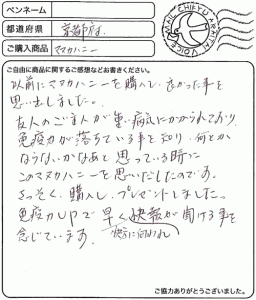 ペンネーム
都道府県 京都府
ご購入商品 マヌカハニー
MAIL CHIKYU ARATAI VOICE
ご自由に商品に関するご感想などお書きください。
以前にマヌカハニーを購入し、良かった事を
思い出しました。
友人のご主人が重い病気にかかられており、
免疫力が落ちている事を知り、何とか
ならないかなあと思っている時に
このマヌカハニーを思いだしたのです。
さっそく、購入し、プレゼントしました。
免疫力UPで早く快報が聞ける事を
念じています。 快方に向われ
ご協力ありがとうございました。